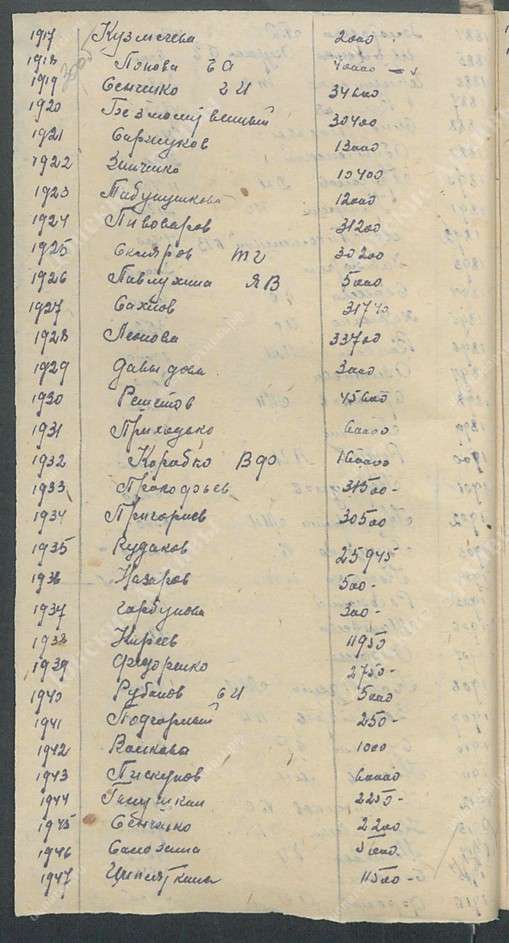 1917 Кузмичева 2000 -
1918 Попова 6а 40000
1919 Сенченко 2И 34600
1920 Безмолитвенный 30400
1921 Сарчуков 13000
1922 Зинченко 10400
1923 Табунщикова 12000
1924 Пивоваров 31200
1925 Скляров ТИ 30200
1926 Павлухина ЯВ 5000
1927 Сахнов 31740
1928 Леонова 33700
1929 Давыдова 3000
1930 Решетов 45600
1931 Приходько 60000
1932 Коробко ВФ 160000
1933 Прокофьев 31500-
1934 Григориев 30500
1935 Рудаков 25945
1936 Назаров 500-
1937 Горбунова 300-
1938 Киреев 11950
1939 Федоренко 2750-
1940 Рубанов 6И 5000
1941 Подгорный 250-
1942 Волкова 1000
1943 Пискунов 60000
1944 2250-
1945 Сенченко 2200
1946 Самохина 5000.
1947 11500-